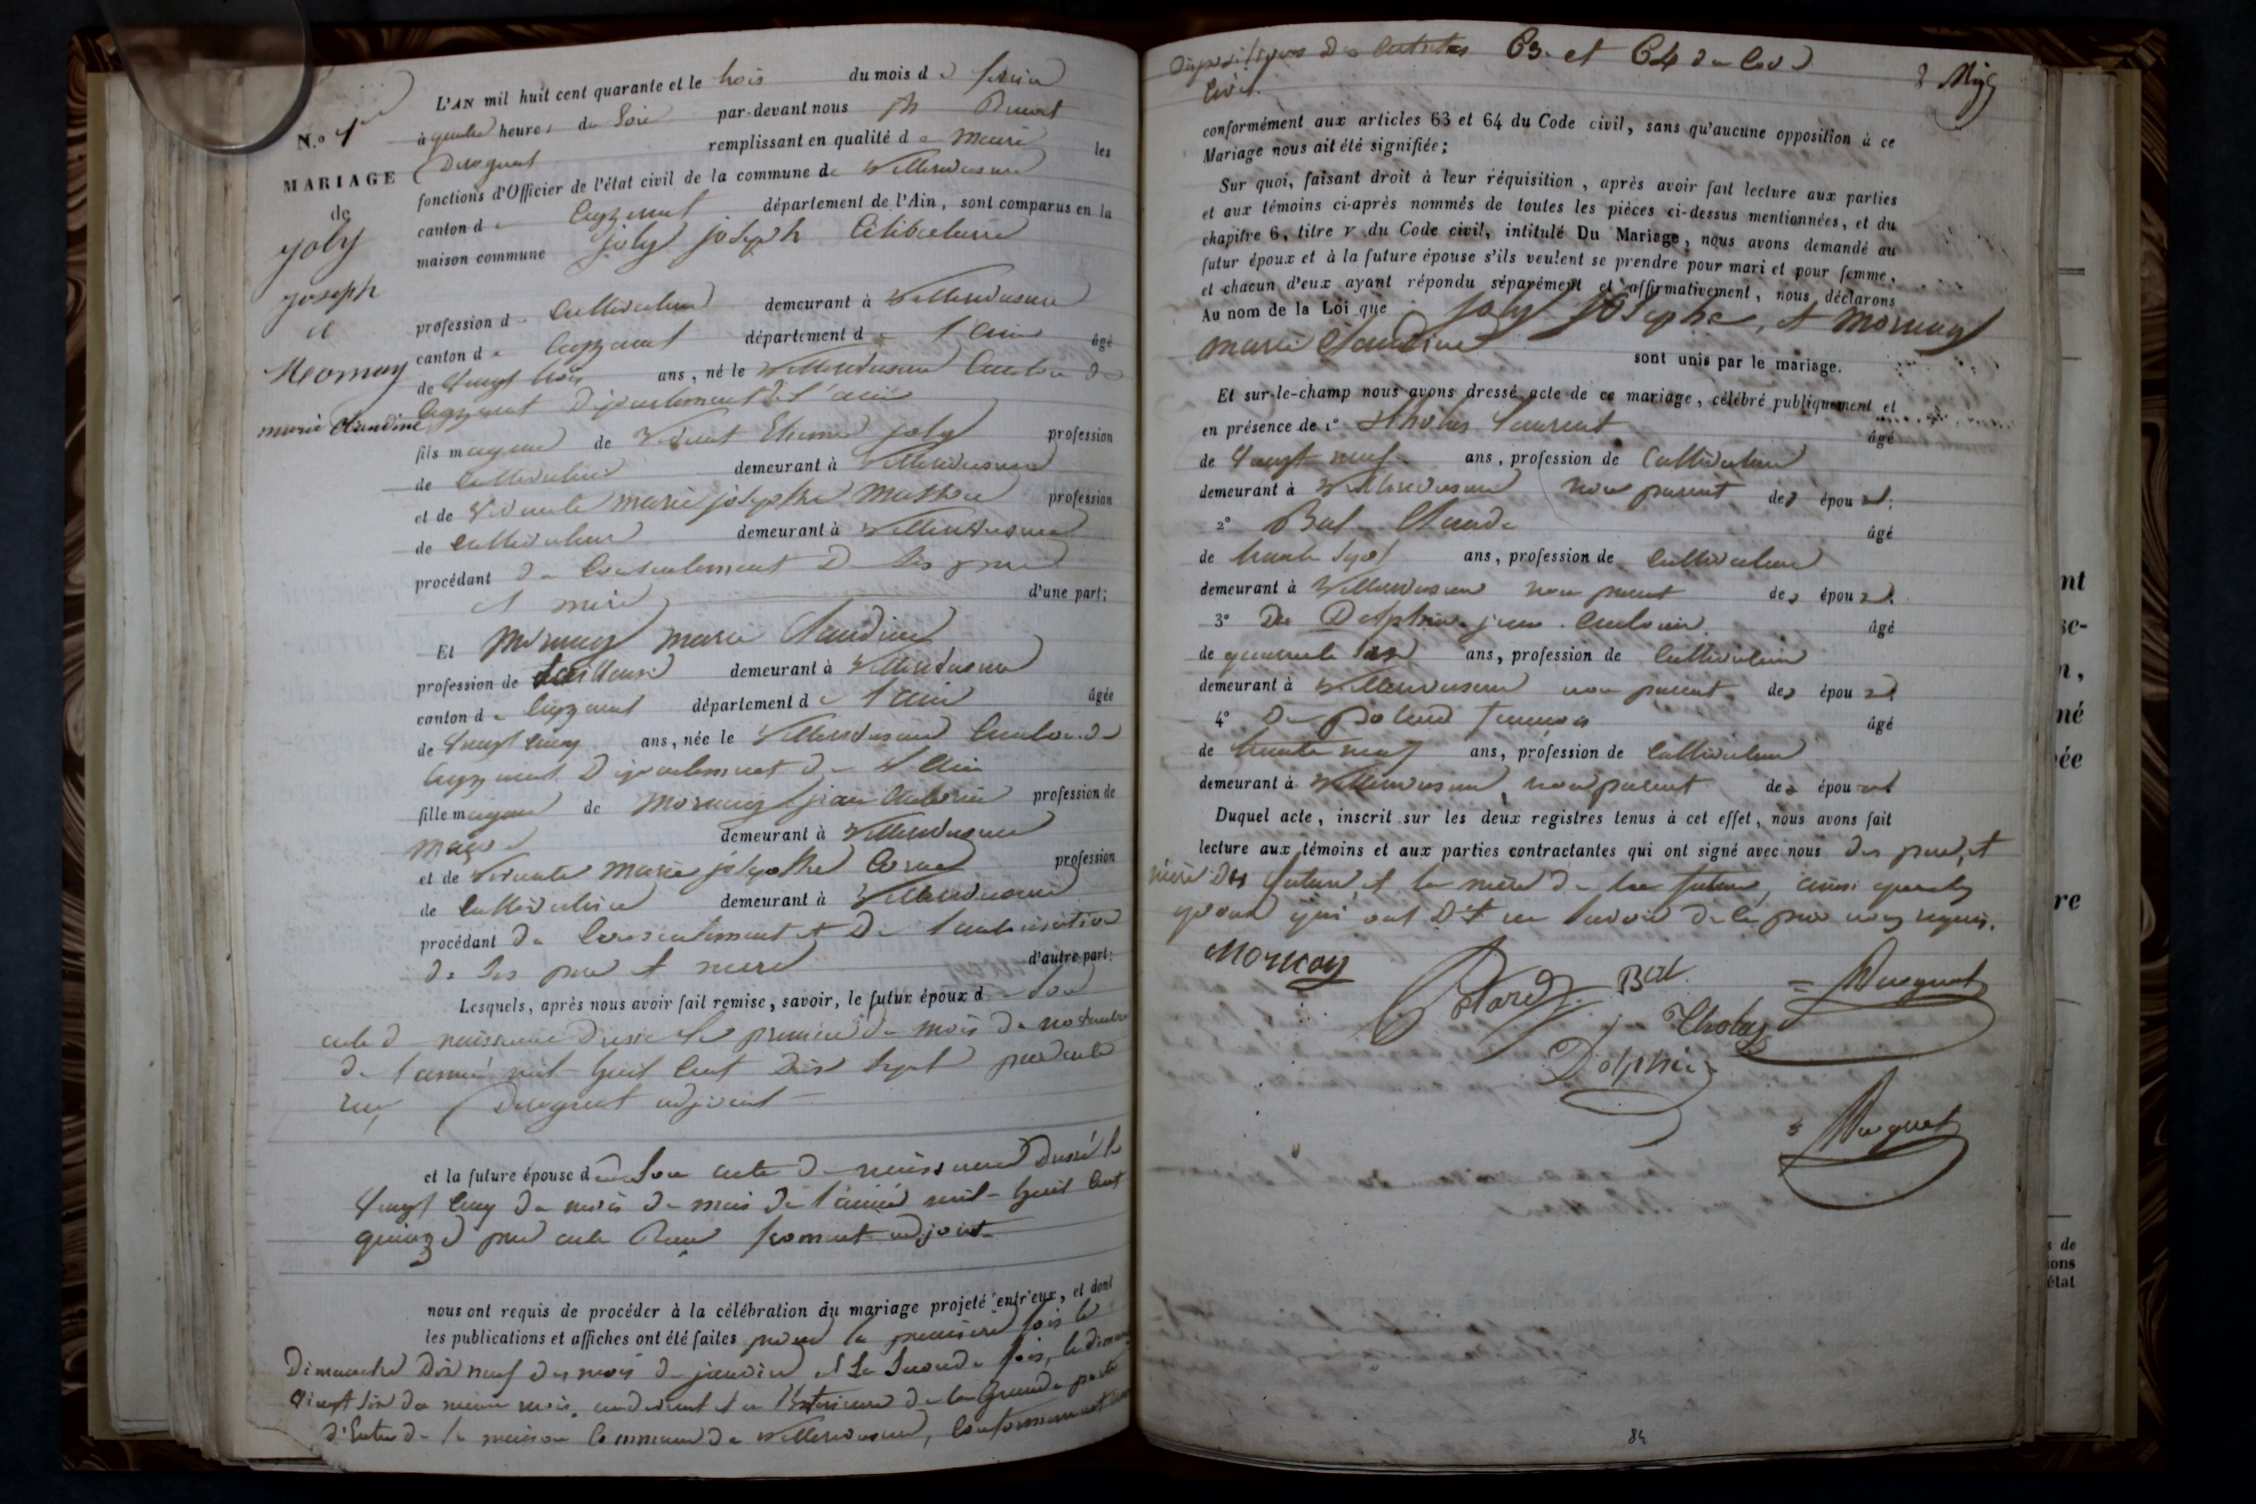 L'AN mil huit cent quarante et le trois du mois de
N.° 1er à quatre heures du Soir par-devant nous
remplissant en qualité de Maire les
MARIAGE
fonctions d'Officier de l'état civil de la commune de Villereversure
de
canton de Ceyzeriat département de l'Ain, sont comparus en la
joly
maison commune joly joseph Célibataire
joseph
et
profession de Cultivateur demeurant à Villereversure
canton de Ceyzeriat département de l'ain âgé
Mornay
de Vingt trois ans, né le Villereversure Canton de
marie Claudine
Ceyzeriat Département de l'ain
fils majeur de Vivant Etienne joly profession
de Cultivateur demeurant à Villereversure
et de Vivante marie josephe profession
de cultivateur demeurant à Villereversure
procédant du Consentement De Ses père
et mère d'une part;
Et Mornay marie Claudine
profession de tailleuse demeurant à Villereversure
canton de Ceyzeriat département de l'ain âgée
de Vingt cinq ans, née le Villereversure Canton de
Ceyzeriat Département de l'Ain
fille majeure de Mornay jean profession de
maçon demeurant à Villereversure
et de Vivante Marie josephe profession
de Cultivatrice demeurant à Villereversure
procédant du Consentement et De l'autorisation
de Ses père et mère d'autre part;
Lesquels, après nous avoir fait remise, savoir, le futur époux de Son
acte de naissance Dressé le premier du mois de novembre
de l'année mil huit Cent Dix Sept par acte
reçu adjoint
et la future épouse de Son acte de naissance Dressé le
Vingt Cinq du mois de mai de l'année mil huit Cent
quinze par acte Reçu adjoint
nous ont requis de procéder à la célébration du mariage projeté entr'eux, et dont
les publications et affiches ont été faites pour la première fois le
Dimanche Dix neuf du mois de janvier et la Seconde fois, le dimanche
Vingt Six du même mois, audevant et a l'Extérieure de la Grande porte
d'Entrée de la maison Commune de Villereversure, Conformément aux
Dispositions des articles 63 et 64 du Code
Civil.
conformément aux articles 63 et 64 du Code civil, sans qu'aucune opposition à ce
Mariage nous ait été signifiée;
Sur quoi, faisant droit à leur réquisition, après avoir fait lecture aux parties
et aux témoins ci-après nommés de toutes les pièces ci-dessus mentionnées, et du
chapitre 6, titre v du Code civil, intitulé Du Mariage, nous avons demandé au
futur époux et à la future épouse s'ils veulent se prendre pour mari et pour femme,
et chacun d'eux ayant répondu séparément et affirmativement, nous déclarons
Au nom de la Loi que joly josephe, et Mornay
marie Claudine sont unis par le mariage.
Et sur-le-champ nous avons dressé acte de ce mariage, célébré publiquement et
en présence de 1° Laurent âgé
de Vingt neuf ans, profession de Cultivateur
demeurant à Villereversure non parent des époux;
2° Bal Claude âgé
de trente Sept ans, profession de Cultivateur
demeurant à Villereversure non parent des époux;
3° De Dolphin jean âgé
de quarante ans, profession de Cultivateur
demeurant à Villereversure non parent des époux;
4° De âgé
de trente neuf ans, profession de Cultivateur
demeurant à Villereversure, non parent des époux
Duquel acte, inscrit sur les deux registres tenus à cet effet, nous avons fait
lecture aux témoins et aux parties contractantes qui ont signé avec nous
mère du futur et la mère de la future,
qui ont Dit ne Savoir De ce requis.
Mornay
Bal
Tholas
Dolphin
84